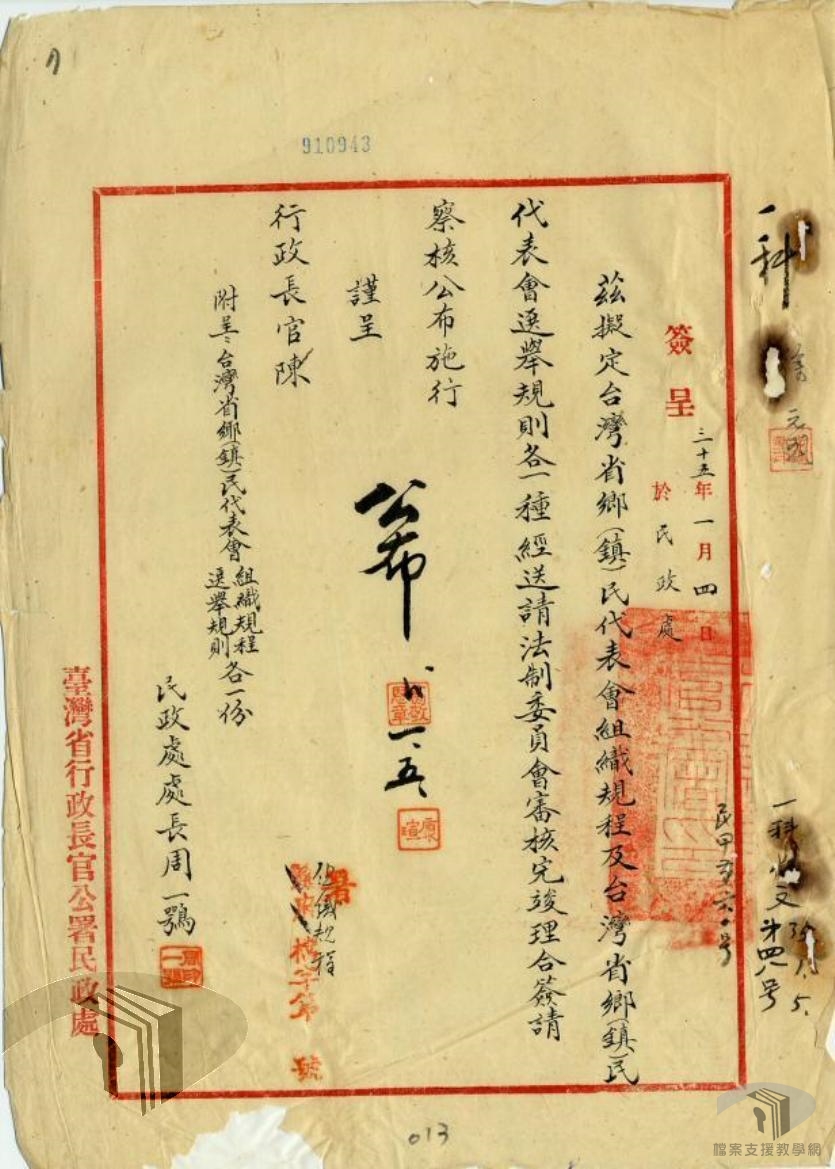 910943
一科
簽呈 三十五年一月四日
於民政處
茲擬定台灣省鄉(鎮)民代表會組織規程及台灣省鄉(鎮)民
代表會選舉規則各一種經送請法制委員會審核完竣理合簽請
察核公布施行
謹呈
行政長官陳
附呈:台灣省鄉(鎮)民代表會組織規程
選舉規則各一份
公布
一、五、
民政處處長周一鶚
組織規程
字第 號
臺灣省行政長官公署民政處
一科收文
第四八号
013
檔案支援教學網